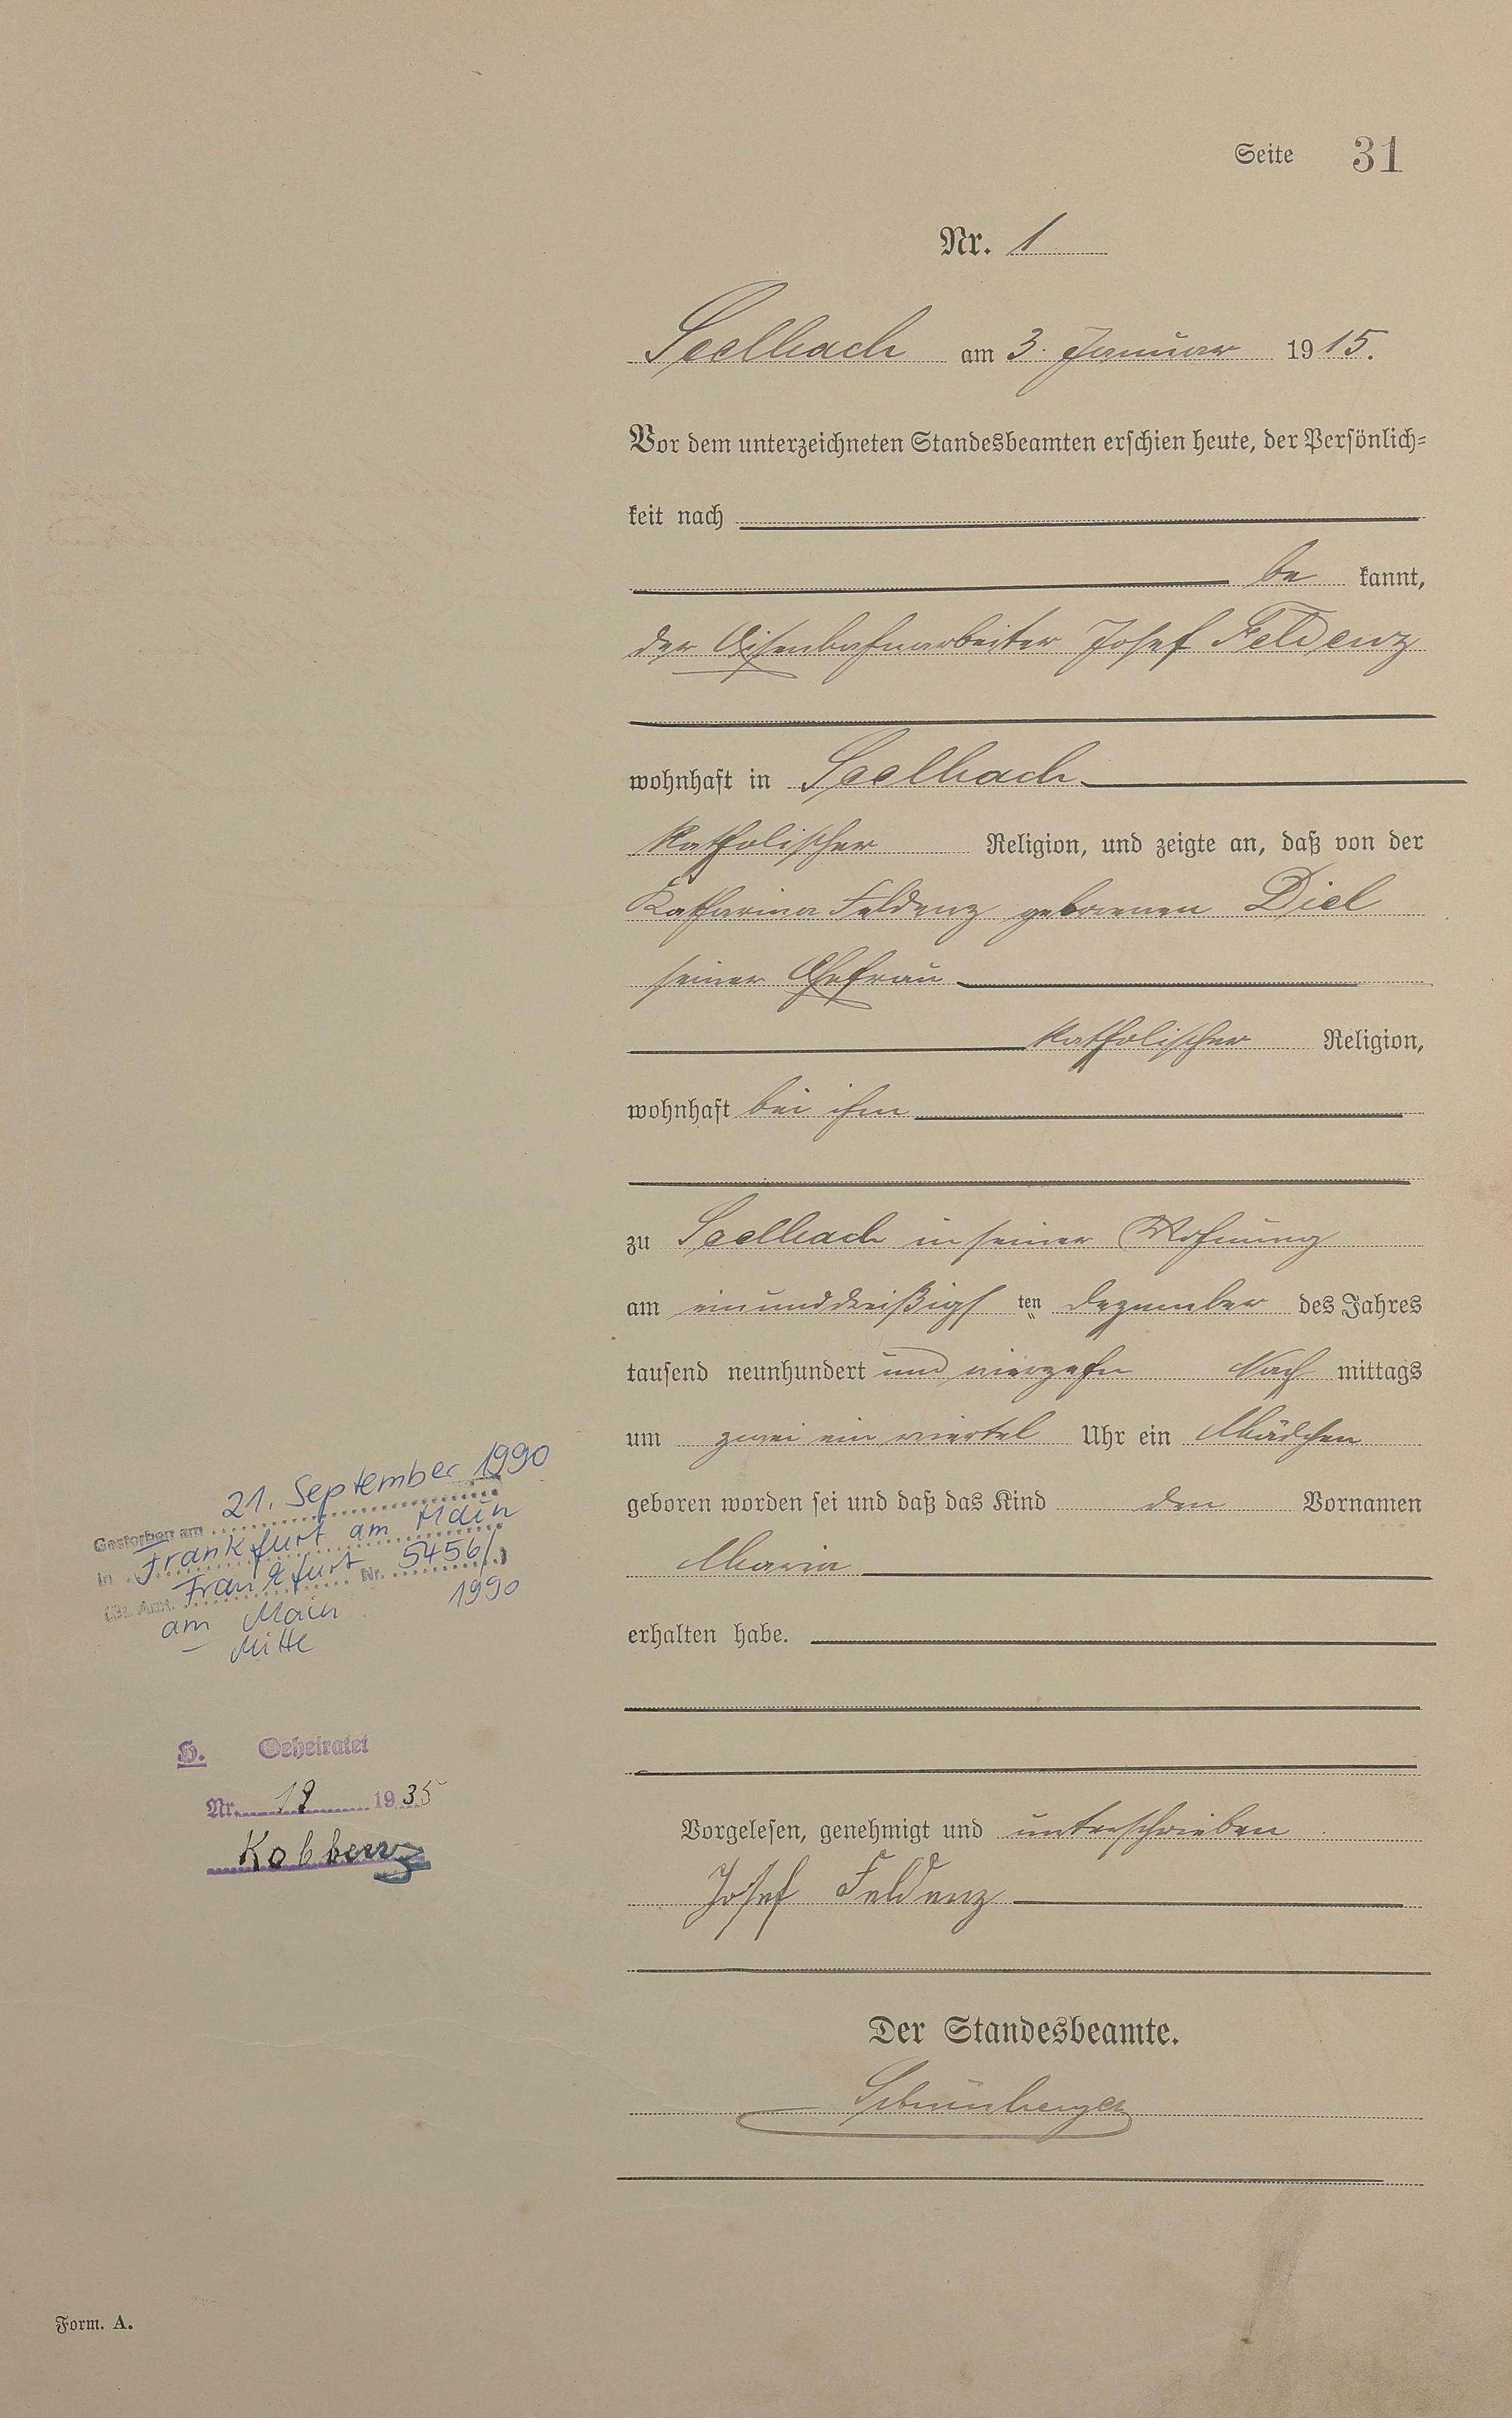 Seite 31
Nr. 1
Seelbach am 3. Januar 1915.
Vor dem unterzeichneten Standesbeamten erschien heute, der Persönlich-
keit nach
be kannt,
der Eisenbahnarbeiter Josef Feldenz
wohnhaft in Seelbach
katholischer Religion, und zeigte an, daß von der
Katharina Feldenz geborenen Diel
seiner Ehefrau
katholischer Religion,
wohnhaft bei ihm
zu Seelbach in seiner Wohnung
am einunddreißigsten Dezember des Jahres
tausend neunhundert und vierzehn Nach mittags
um zwei ein viertel Uhr ein Mädchen
geboren worden sei und daß das Kind den Vornamen
Maria
erhalten habe.
Vorgelesen, genehmigt und unterschrieben
Josef Feldenz
Der Standesbeamte.
21. September 1990
Gestorben am
in Frankfurt am Main
(St. Amt. Frankfurt Nr. 5456/
am Main 1990
– Mitte
H. Geheiratet
Nr. 12 1935
Form. A.